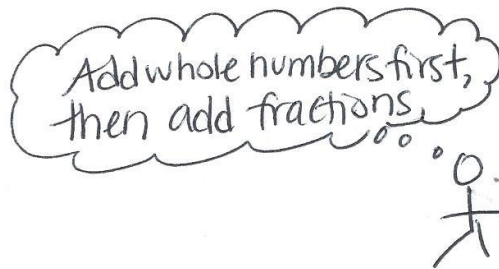 Add whole numbers first,
then add fractions.